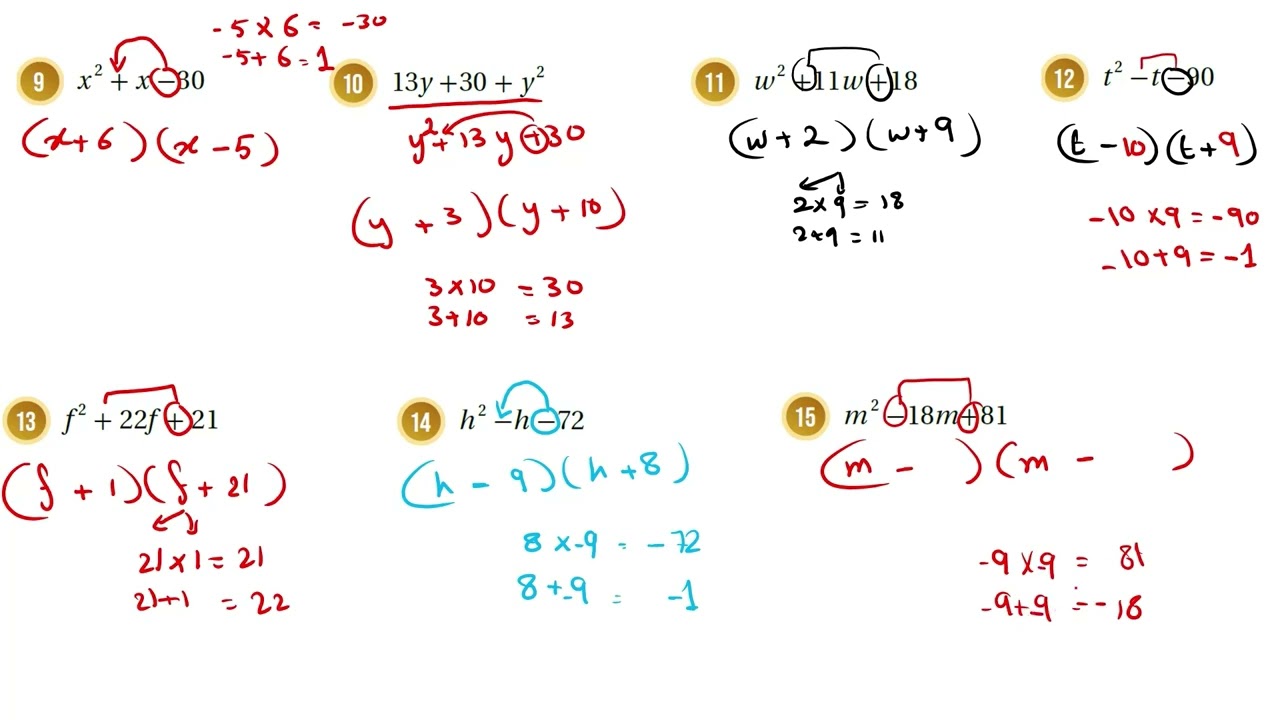 -5 × 6 = -30
-5 + 6 = 1
9 x² + x − 30
(x + 6)(x − 5)
10 13y + 30 + y²
y² + 13y + 30
(y + 3)(y + 10)
3 × 10 = 30
3 + 10 = 13
11 w² + 11w + 18
(w + 2)(w + 9)
2 × 9 = 18
2 + 9 = 11
12 t² − t − 90
(t − 10)(t + 9)
-10 × 9 = -90
-10 + 9 = -1
13 f² + 22f + 21
(f + 1)(f + 21)
21 × 1 = 21
21 + 1 = 22
14 h² − h − 72
(h − 9)(h + 8)
8 × -9 = -72
8 + -9 = -1
15 m² − 18m + 81
(m − )(m − )
-9 × -9 = 81
-9 + -9 = -18